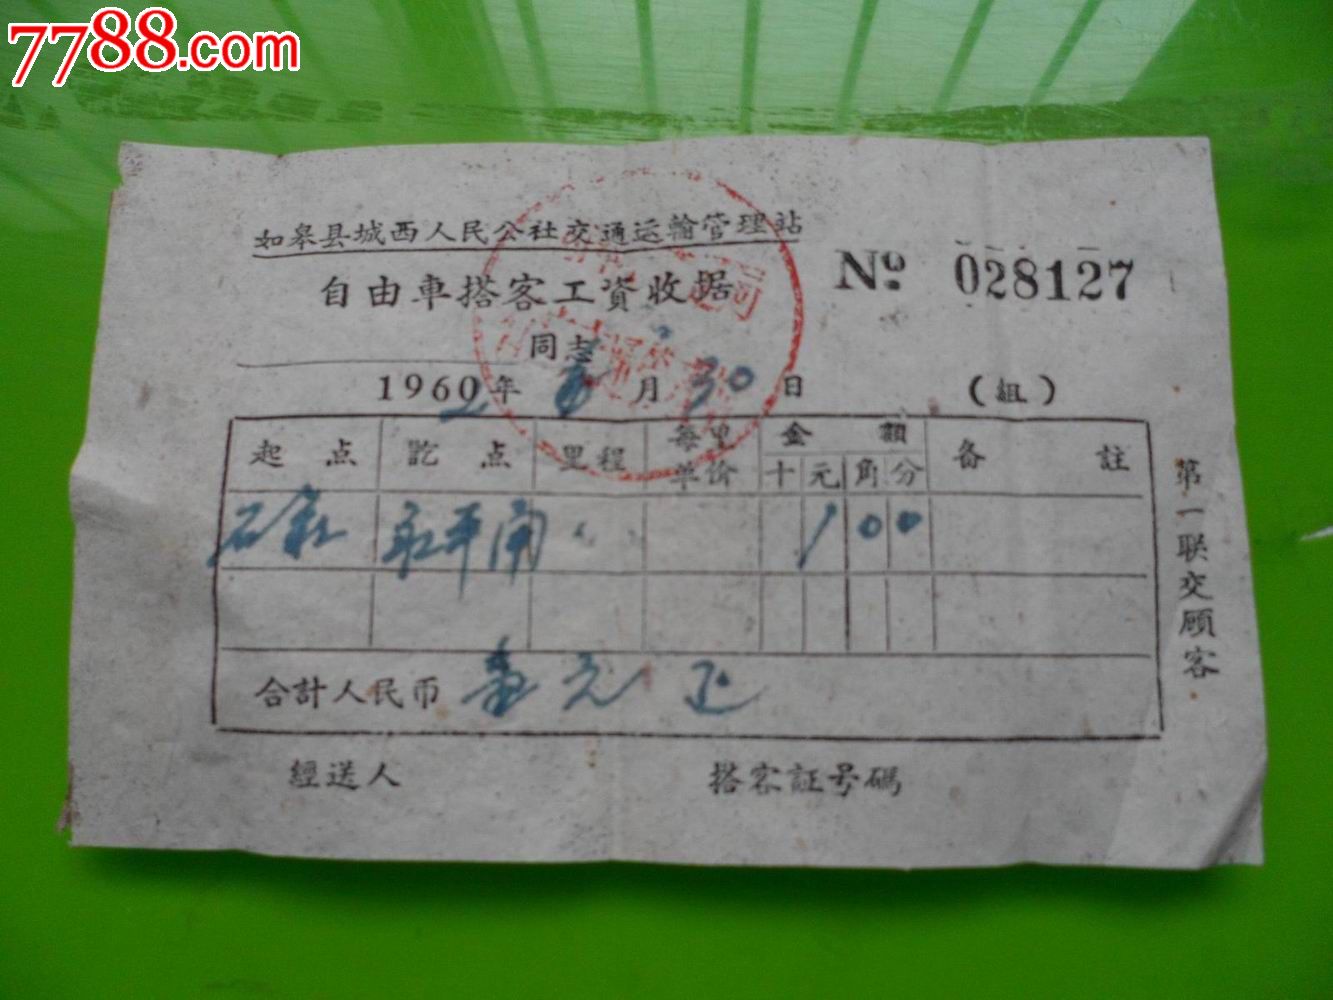 7788.com
如皋县城西人民公社交通运输管理站
自由車搭客工資收据
No 028127
同志
1960年 月 30 日 (組)
起点 訖点 里程 每里单价 金額 十元角分 备註
1 0 0
合計人民币 壹元正
經送人 搭客証号碼
第一联交顾客